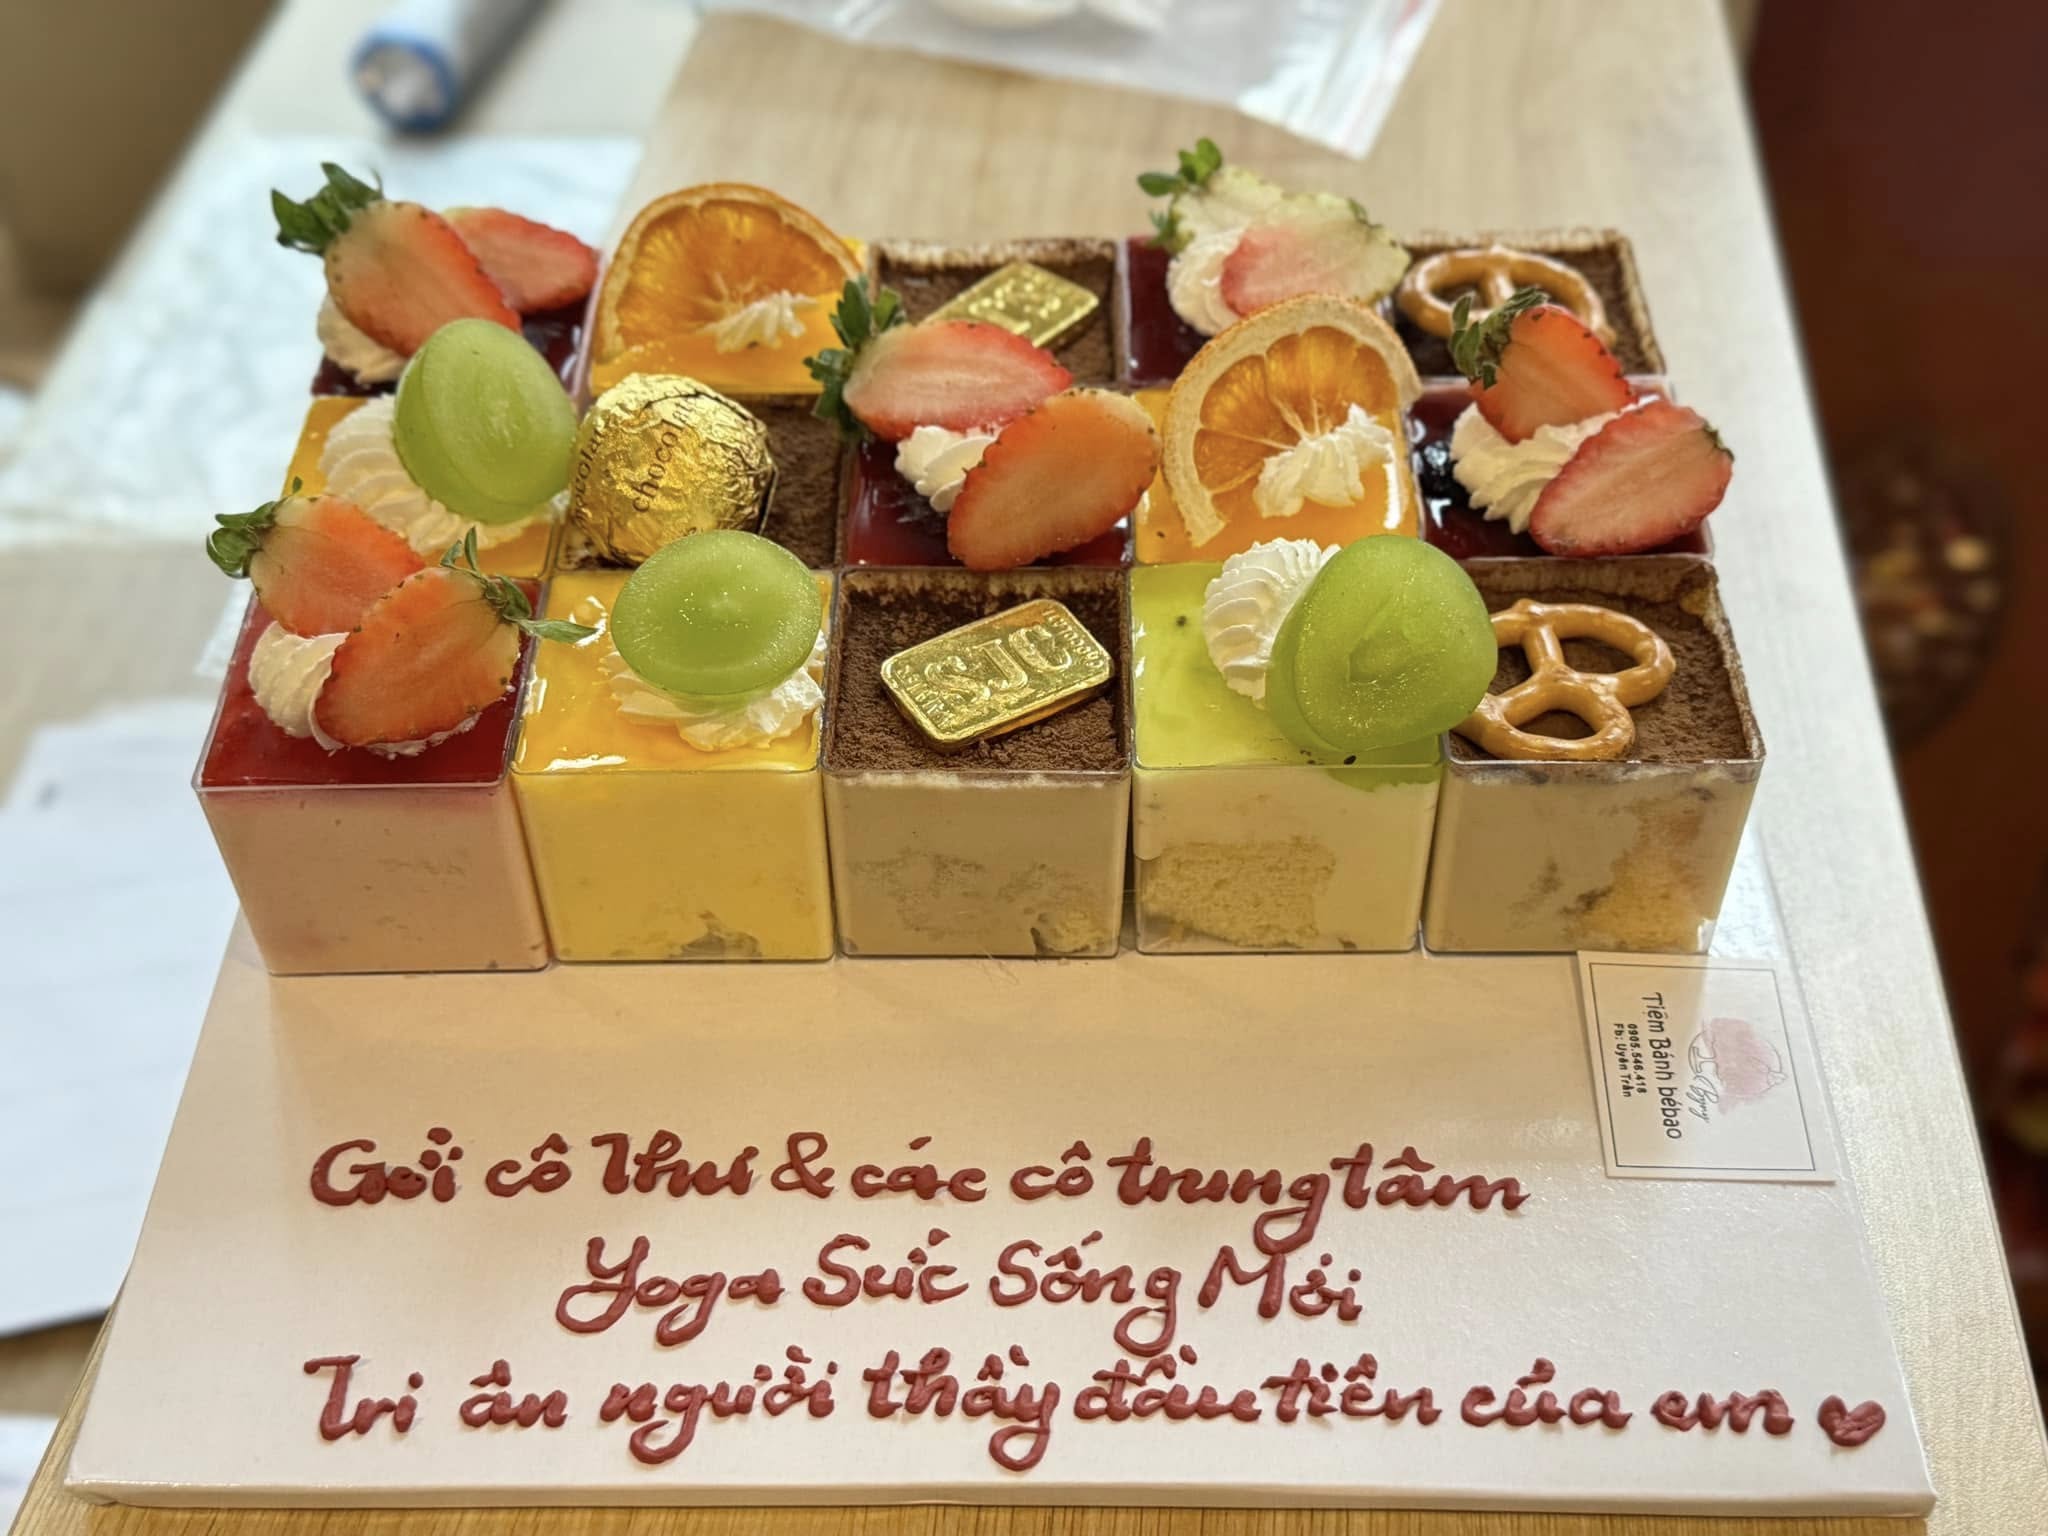 chocolat
SJC
Tiệm Bánh bébao
0905.546.418
Fb: Uyên Trần
Gởi cô Thư & các cô trung tâm
Yoga Sức Sống Mới
Tri ân người thầy đầu tiên của em